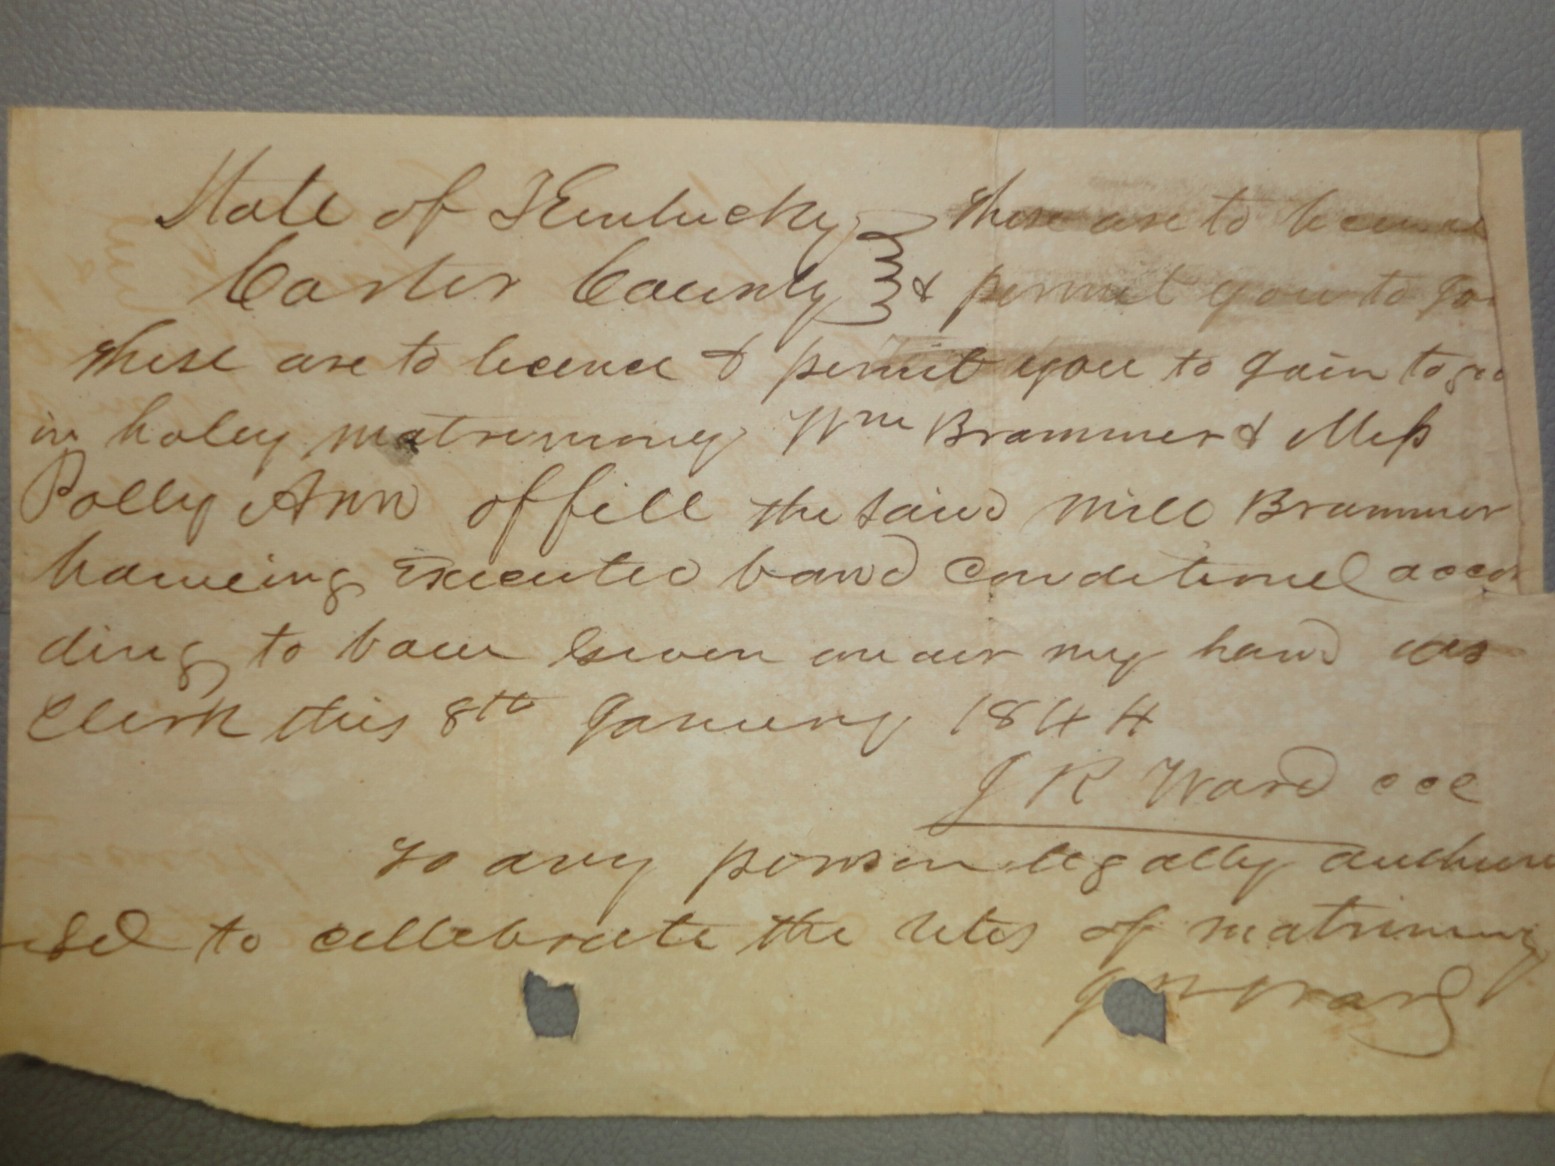 State of Kentucky these are to licence
Carter County & permit you to jo
these are to licence & permit you to Join toge
in holey matrimony Wm Brammer & Miss
Polly Ann offill the said Will Brammer
haveing Executed band conditionel accor
ding to law Given under my hand as
Clerk this 8th January 1844
J R Ward ccc
To any person legally authori
sed to cellebrate the rites of matrimony
J R Ward